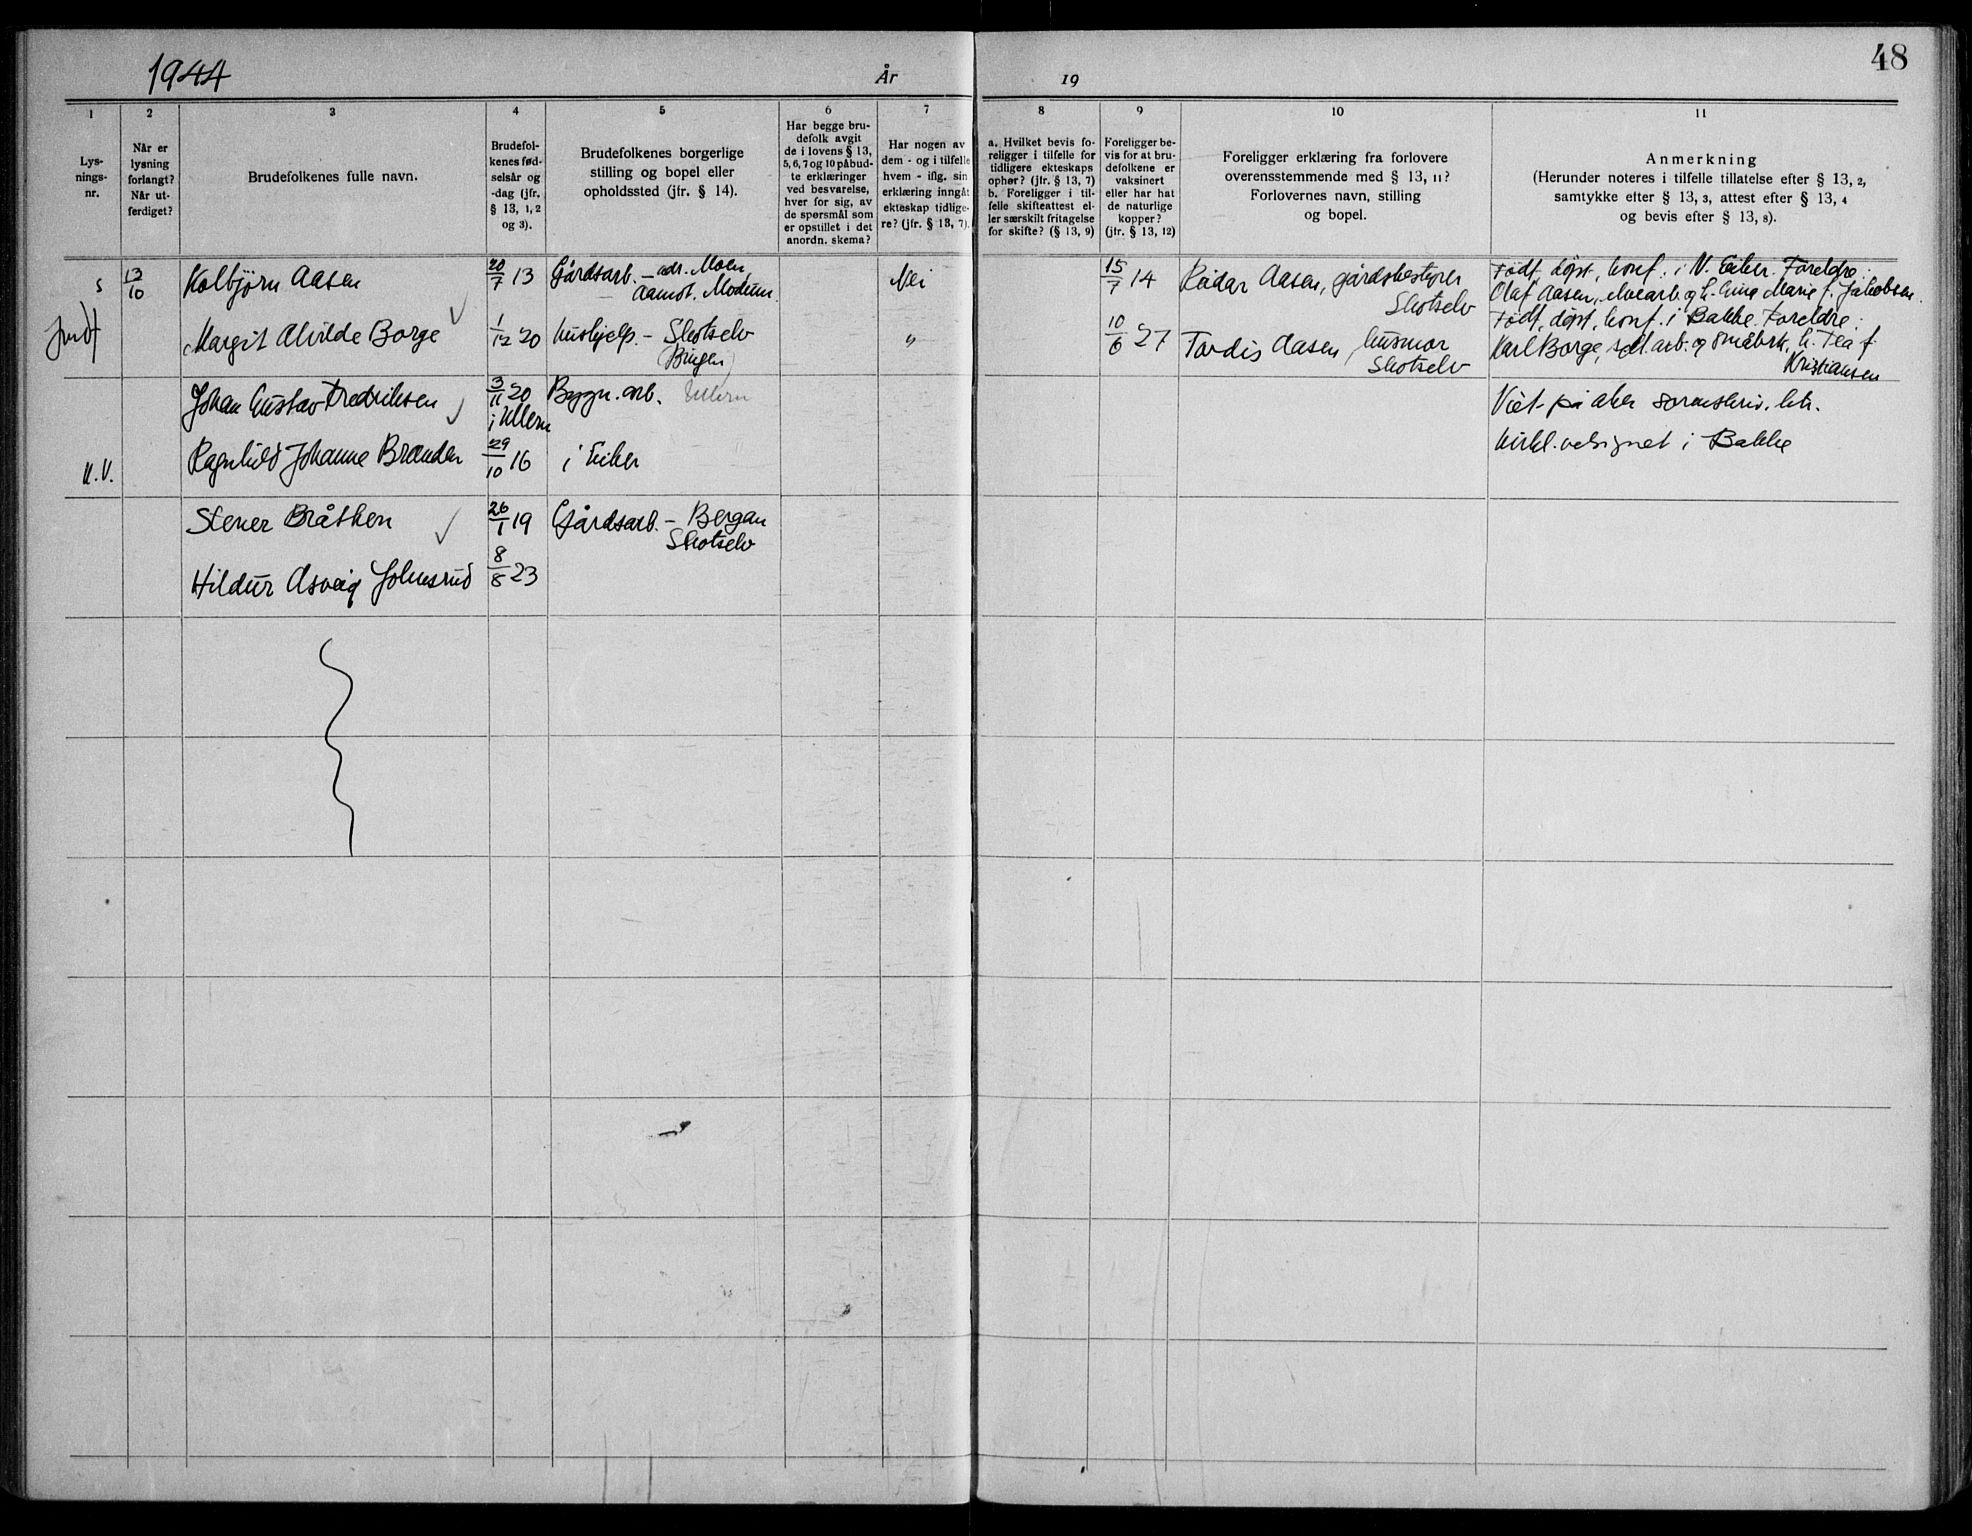 1944
År
19
48
1
2
3
4
5
6
7
8
9
10
11
Lys-
nings-
nr.
Når er
lysning
forlangt?
Når ut-
ferdiget?
Brudefolkenes fulle navn.
Brudefol-
kenes fød-
selsår og
-dag (jfr.
§ 13, 1, 2
og 3).
Brudefolkenes borgerlige
stilling og bopel eller
opholdssted (jfr. § 14).
Har begge bru-
defolk avgit
de i lovens § 13,
5, 6, 7 og 10 påbud-
te erklæringer
ved besvarelse,
hver for sig, av
de spørsmål som
er opstillet i det
anordn. skema?
Har nogen av
dem - og i tilfelle
hvem - iflg. sin
erklæring inngåt
ekteskap tidlige-
re? (jfr. § 13, 7).
a. Hvilket bevis fo-
religger i tilfelle for
tidligere ekteskaps
ophør? (jfr. § 13, 7)
b. Foreligger i til-
felle skifteattest el-
ler særskilt fritagelse
for skifte? (§ 13, 9)
Foreligger be-
vis for at bru-
defolkene er
vaksinert
eller har hat
de naturlige
kopper?
(jfr. § 13, 12)
Foreligger erklæring fra forlovere
overensstemmende med § 13, 11?
Forlovernes navn, stilling
og bopel.
Anmerkning
(Herunder noteres i tilfelle tillatelse efter § 13, 2,
samtykke efter § 13, 3, attest efter § 13, 4
og bevis efter § 13, 8).
5
13/10
Kolbjørn Aasen
20/7 13
Gårdsarb. - adr. Moen
Aamot. Modum.
Nei
15/7 14
Reidar Aasen, gårdsbestyrer
Skotselv
Født, døpt, konf. i N. Eiker. Foreldre:
Olaf Aasen, og h. Marie f. Jakobsen.
Margit Alvilde Borge
1/12 20
hushjelp. - Skotselv
"
10/6 27
Tordis Aasen, husmor
Skotselv
Født, døpt, konf. i Bakke. Foreldre:
Karl Borge, arb. og småbrk, h. Tea f.
Kristiansen
Johan Gustav Fredriksen
3/11 20
i Ullern
Byggn. arb. Ullern
Viet på Aker sorenskriv. ktr.
K.V.
Ragnhild Johanne Brænden
29/10 16
i Eiker
Kirkl. velsignet i Bakke
Stener Bråthen
26/1 19
Gårdsarb. - Bergan
Skotselv
Hildur Asveig Johnsrud
8/8 23